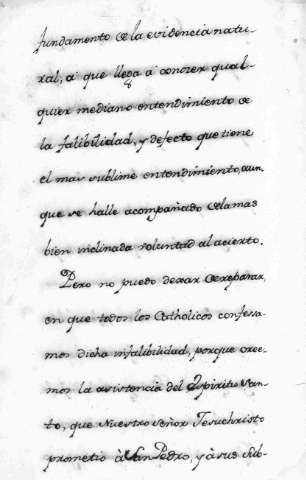 fundamento de la evidencia natu-
ral, a que llega a conozer qual-
quier mediano entendimiento de
la falibilidad, y defecto que tiene
el mas sublime entendimiento, aun-
que se halle acompañado de la mas
bien inclinada voluntad al acierto.
Pero no puedo dexar de reparar,
en que todos los Catholicos confessa-
mos dicha infalibilidad, porque cree-
mos la asistencia del Espiritu San-
to, que Nuestro Señor Jesuchristo
prometió à San Pedro, y à sus Sub-